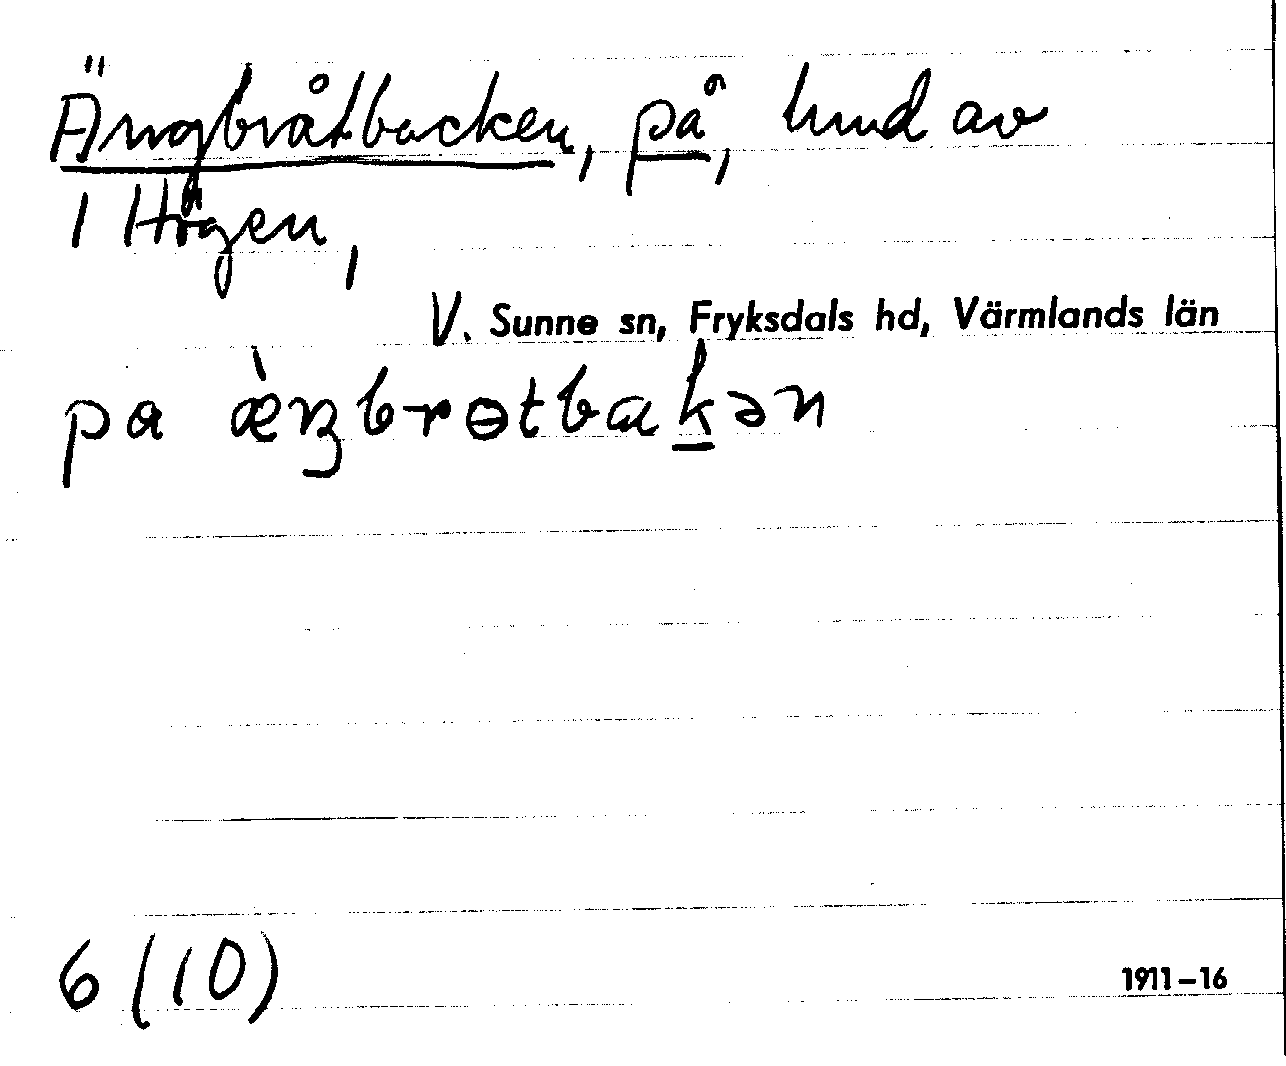 Ängbråtbacken, på, hmd av
1 Högen,
V. Sunne sn, Fryksdals hd, Värmlands län
pa æ̀ŋbrɵtbak̲ən
6 (10)
1911–16